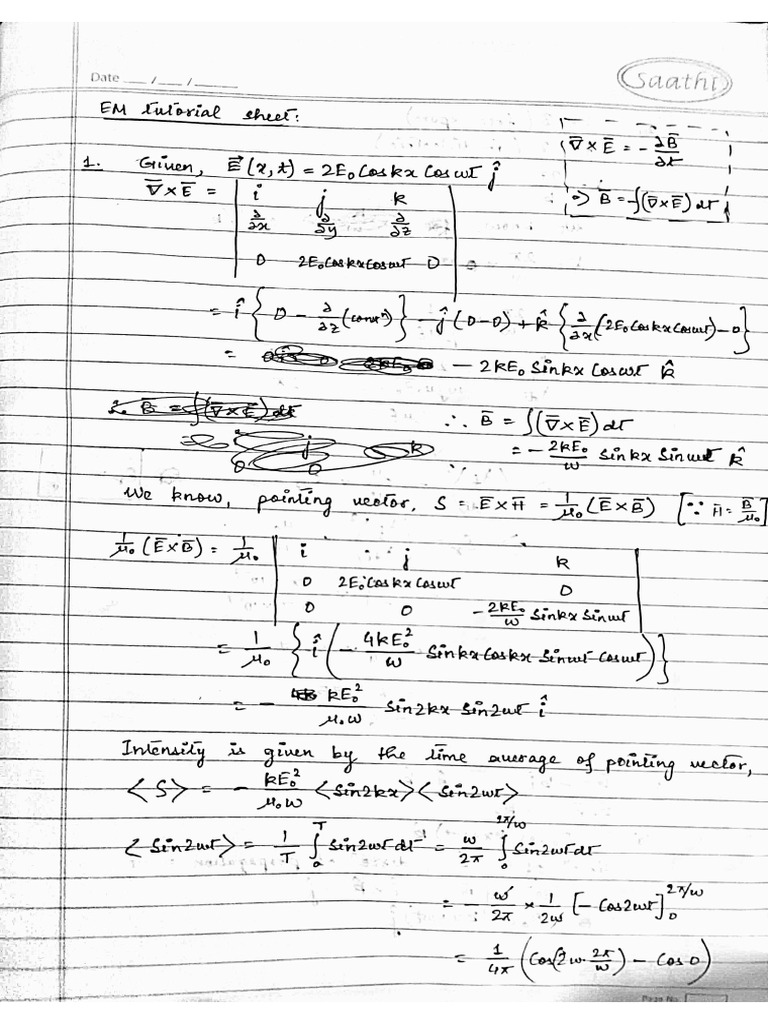 Date ___/___/_____
Saathi
EM tutorial sheet:
∇̄ × Ē = -∂B̄/∂t
=> B̄ = -∫(∇̄×Ē) dt
1. Given, E⃗(x,t) = 2E₀ Coskx Cosωt ĵ
∇̄×Ē = | i j k |
| ∂/∂x ∂/∂y ∂/∂z |
| 0 2E₀Coskx Cosωt 0 |
= î {0 - ∂/∂z (consⁿ)} - ĵ (0-0) + k̂ {∂/∂x (2E₀ Coskx Cosωt) - 0}
= - 2kE₀ Sinkx Cosωt k̂
∴ B̄ = ∫(∇̄×Ē) dt
= - 2kE₀/ω Sinkx Sinωt k̂
We know, pointing vector, S = Ē×H̄ = 1/μ₀ (Ē×B̄) [∵ H̄ = B̄/μ₀]
1/μ₀ (Ē×B̄) = 1/μ₀ | i j k |
| 0 2E₀Coskx Cosωt 0 |
| 0 0 -2kE₀/ω Sinkx Sinωt |
= 1/μ₀ { î (- 4kE₀²/ω Sinkx Coskx Sinωt Cosωt) }
= - kE₀²/μ₀ω Sin2kx Sin2ωt î
Intensity is given by the time average of pointing vector,
<S> = - kE₀²/μ₀ω <Sin2kx> <Sin2ωt>
<Sin2ωt> = 1/T ∫₀ᵀ Sin2ωt dt = ω/2π ∫₀^(2π/ω) Sin2ωt dt
= - ω/2π × 1/2ω [- Cos2ωt]₀^(2π/ω)
= 1/4π (Cos(2ω·2π/ω) - Cos 0)
Page No.